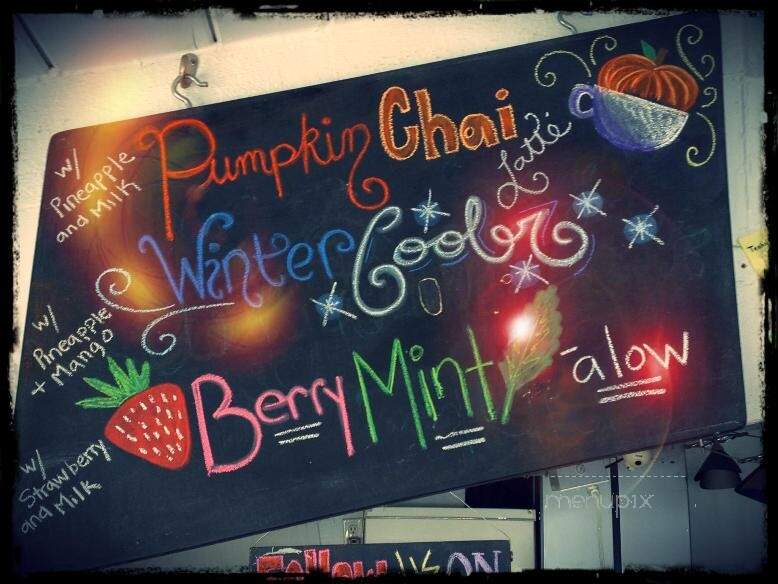 w/
Pineapple
and Milk
Pumpkin Chai
Latté
w/
Pineapple
+ Mango
Winter Cooler
w/
Strawberry
and Milk
Berry Mint
-alow
Follow US ON
menupix